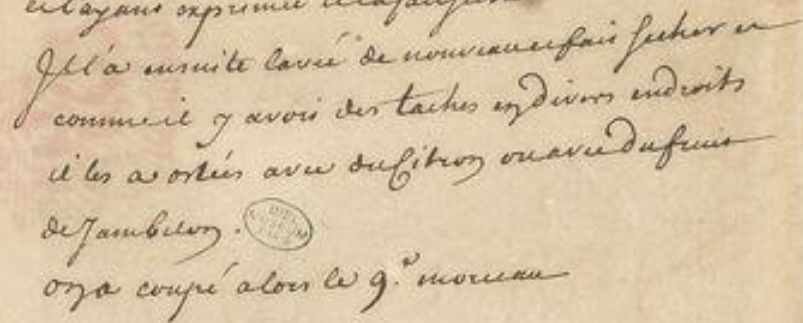 et layant exprimée
Il l'a ensuite lavée de nouveau et fais secher et
comme il y avoit des taches en divers endroits
il les a ostées avec du Citron ou avec du fruit
de Jambelon.
on a coupé alors le 9.e morceau